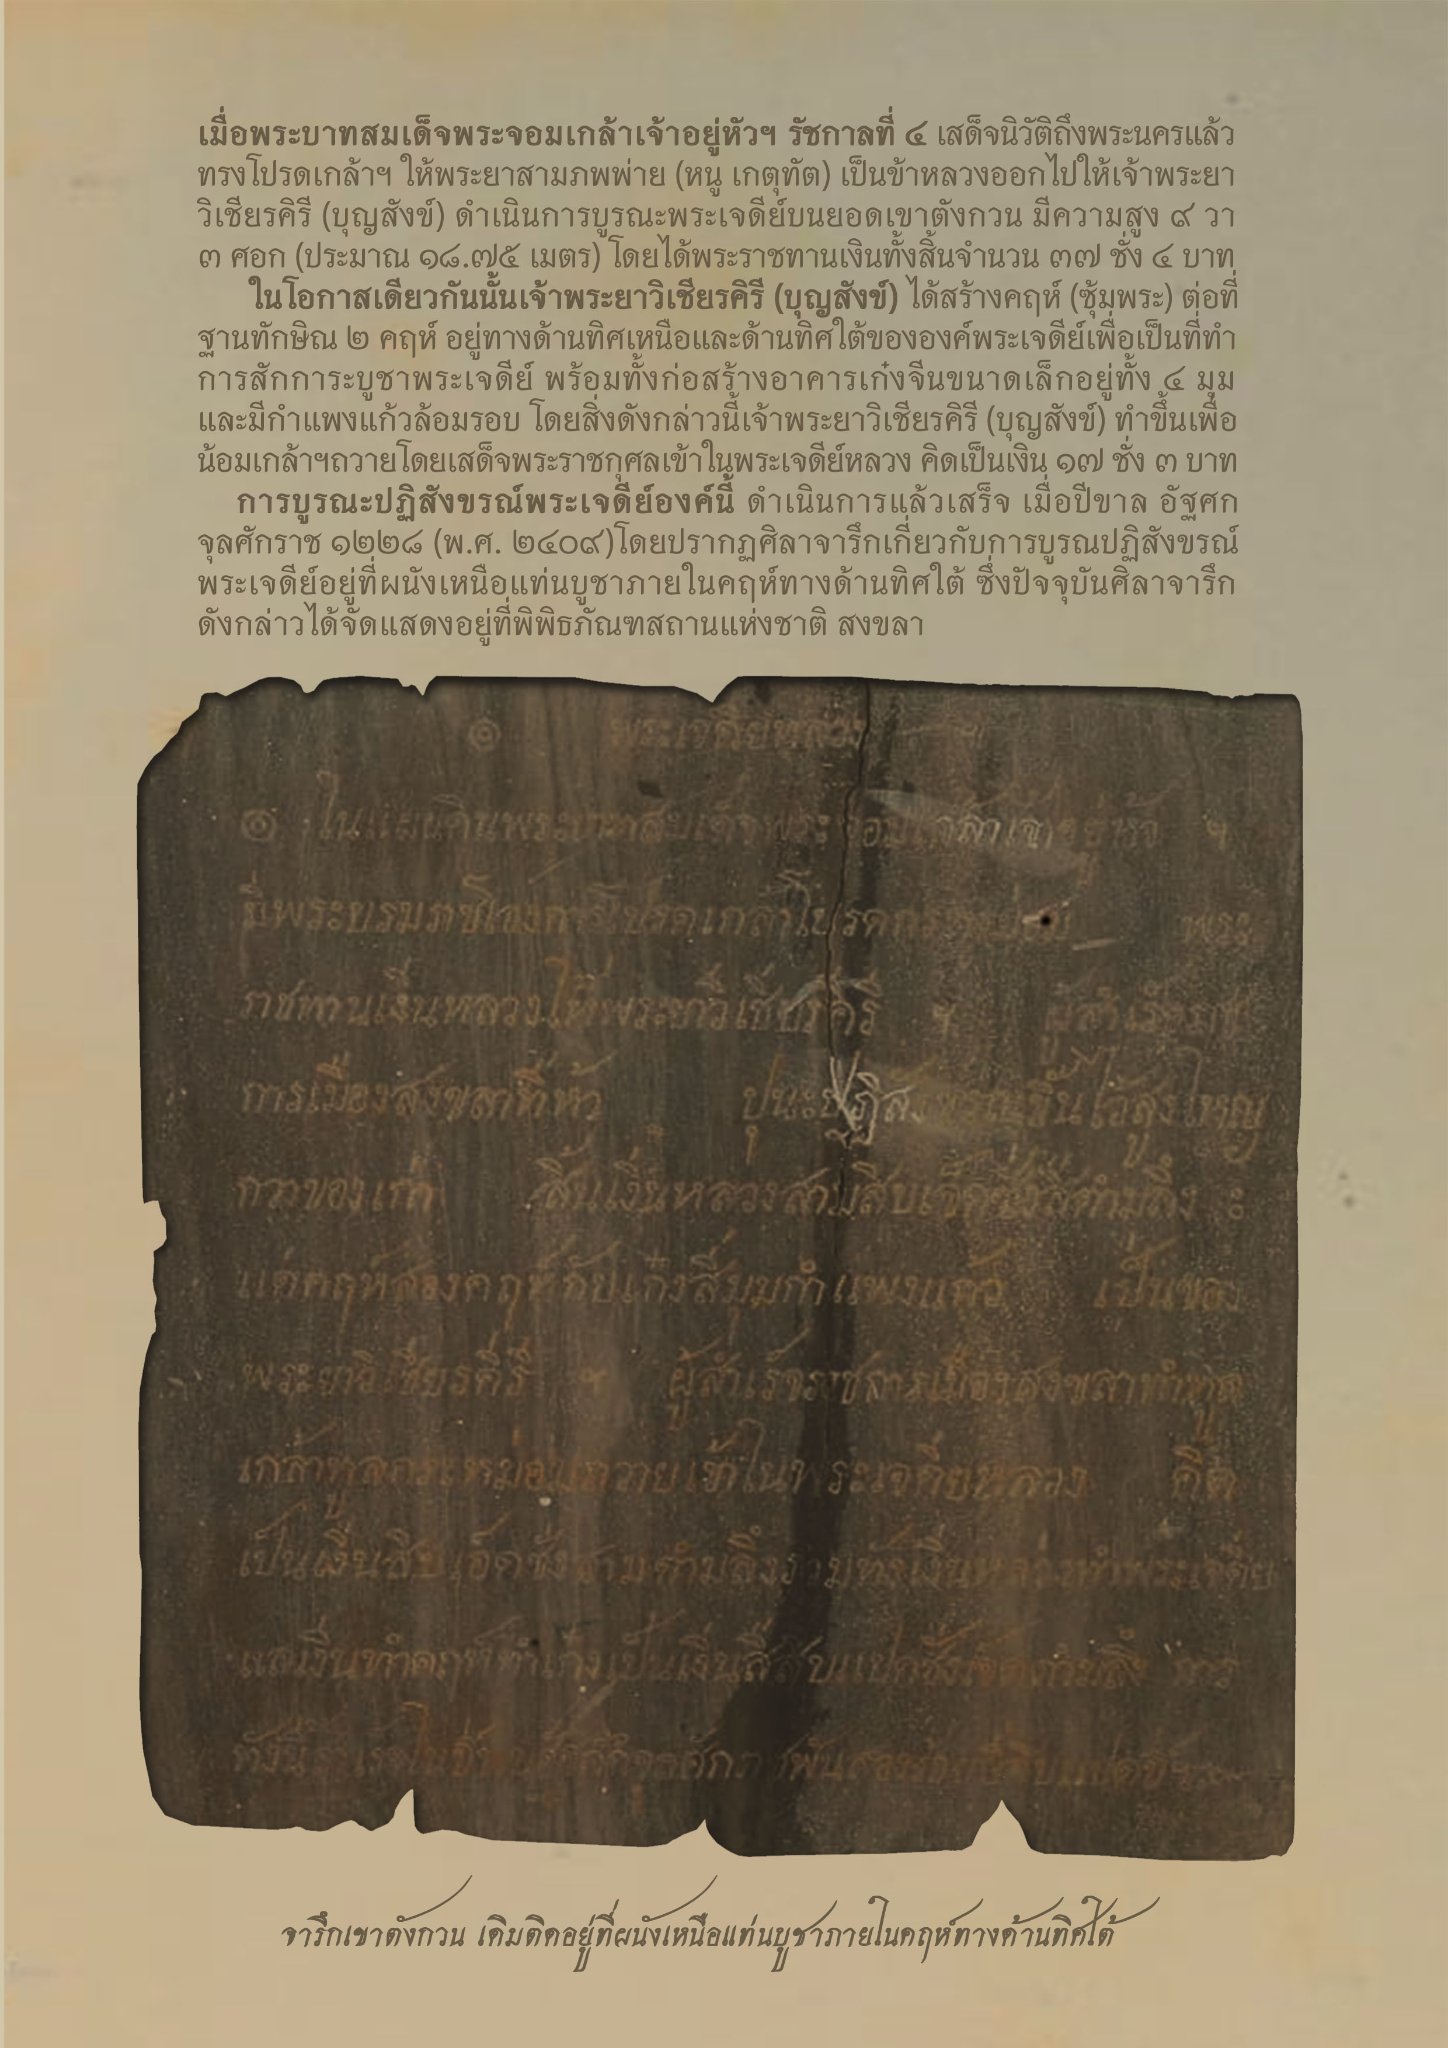 เมื่อพระบาทสมเด็จพระจอมเกล้าเจ้าอยู่หัวฯ รัชกาลที่ ๔ เสด็จนิวัติถึงพระนครแล้ว
ทรงโปรดเกล้าฯ ให้พระยาสามภพพ่าย (หนู เกตุทัต) เป็นข้าหลวงออกไปให้เจ้าพระยา
วิเชียรคิรี (บุญสังข์) ดำเนินการบูรณะพระเจดีย์บนยอดเขาตังกวน มีความสูง ๙ วา
๓ ศอก (ประมาณ ๑๘.๗๕ เมตร) โดยได้พระราชทานเงินทั้งสิ้นจำนวน ๓๗ ชั่ง ๔ บาท
ในโอกาสเดียวกันนั้นเจ้าพระยาวิเชียรคิรี (บุญสังข์) ได้สร้างคฤห์ (ซุ้มพระ) ต่อที่
ฐานทักษิณ ๒ คฤห์ อยู่ทางด้านทิศเหนือและด้านทิศใต้ขององค์พระเจดีย์เพื่อเป็นที่ทำ
การสักการะบูชาพระเจดีย์ พร้อมทั้งก่อสร้างอาคารเก๋งจีนขนาดเล็กอยู่ทั้ง ๔ มุม
และมีกำแพงแก้วล้อมรอบ โดยสิ่งดังกล่าวนี้เจ้าพระยาวิเชียรคิรี (บุญสังข์) ทำขึ้นเพื่อ
น้อมเกล้าฯถวายโดยเสด็จพระราชกุศลเข้าในพระเจดีย์หลวง คิดเป็นเงิน ๑๗ ชั่ง ๓ บาท
การบูรณะปฏิสังขรณ์พระเจดีย์องค์นี้ ดำเนินการแล้วเสร็จ เมื่อปีขาล อัฐศก
จุลศักราช ๑๒๒๘ (พ.ศ. ๒๔๐๙)โดยปรากฏศิลาจารึกเกี่ยวกับการบูรณปฏิสังขรณ์
พระเจดีย์อยู่ที่ผนังเหนือแท่นบูชาภายในคฤห์ทางด้านทิศใต้ ซึ่งปัจจุบันศิลาจารึก
ดังกล่าวได้จัดแสดงอยู่ที่พิพิธภัณฑสถานแห่งชาติ สงขลา
๏ พระเจดียหลวง ฯ
๏ ในแผ่นดินพระบาทสมเดจพระจอมเกล้าเจ้าอยู่หัว ฯ
มีพระบรมราชโองการโปรดเกล้าโปรดกระหม่อม พระ
ราชทานเงินหลวงให้พระยาวิเชียรคิรี ฯ ผู้สำเร็จราช
การเมืองสงขลาที่ห้า ปุนะปฏิสังขรณขึ้นไว้สูงใหญ่
กว่าของเก่า สิ้นเงินหลวงสามสิบเจดชั่งสี่ตำลึง ะ
แต่คฤห์สองคฤห์กับเก๋งสี่มุมกำแพงแก้ว เป็นของ
พระยาวิเชียรคิรี ฯ ผู้สำเร็จราชการเมืองสงขลาทำทูล
เกล้าทูลกระหม่อมถวายเข้าในพระเจดียหลวง คิด
เป็นเงินสิบเอ็ดชั่งสามตำลึงรวมทั้งเงินหลวงทำพระเจดีย
แลเงินทำคฤห์ทำเก๋งเป็นเงินสี่สิบแปดชั่งเจดตำลึง การ
จารึกเขาตังกวน เดิมติดอยู่ที่ผนังเหนือแท่นบูชาภายในคฤห์ทางด้านทิศใต้